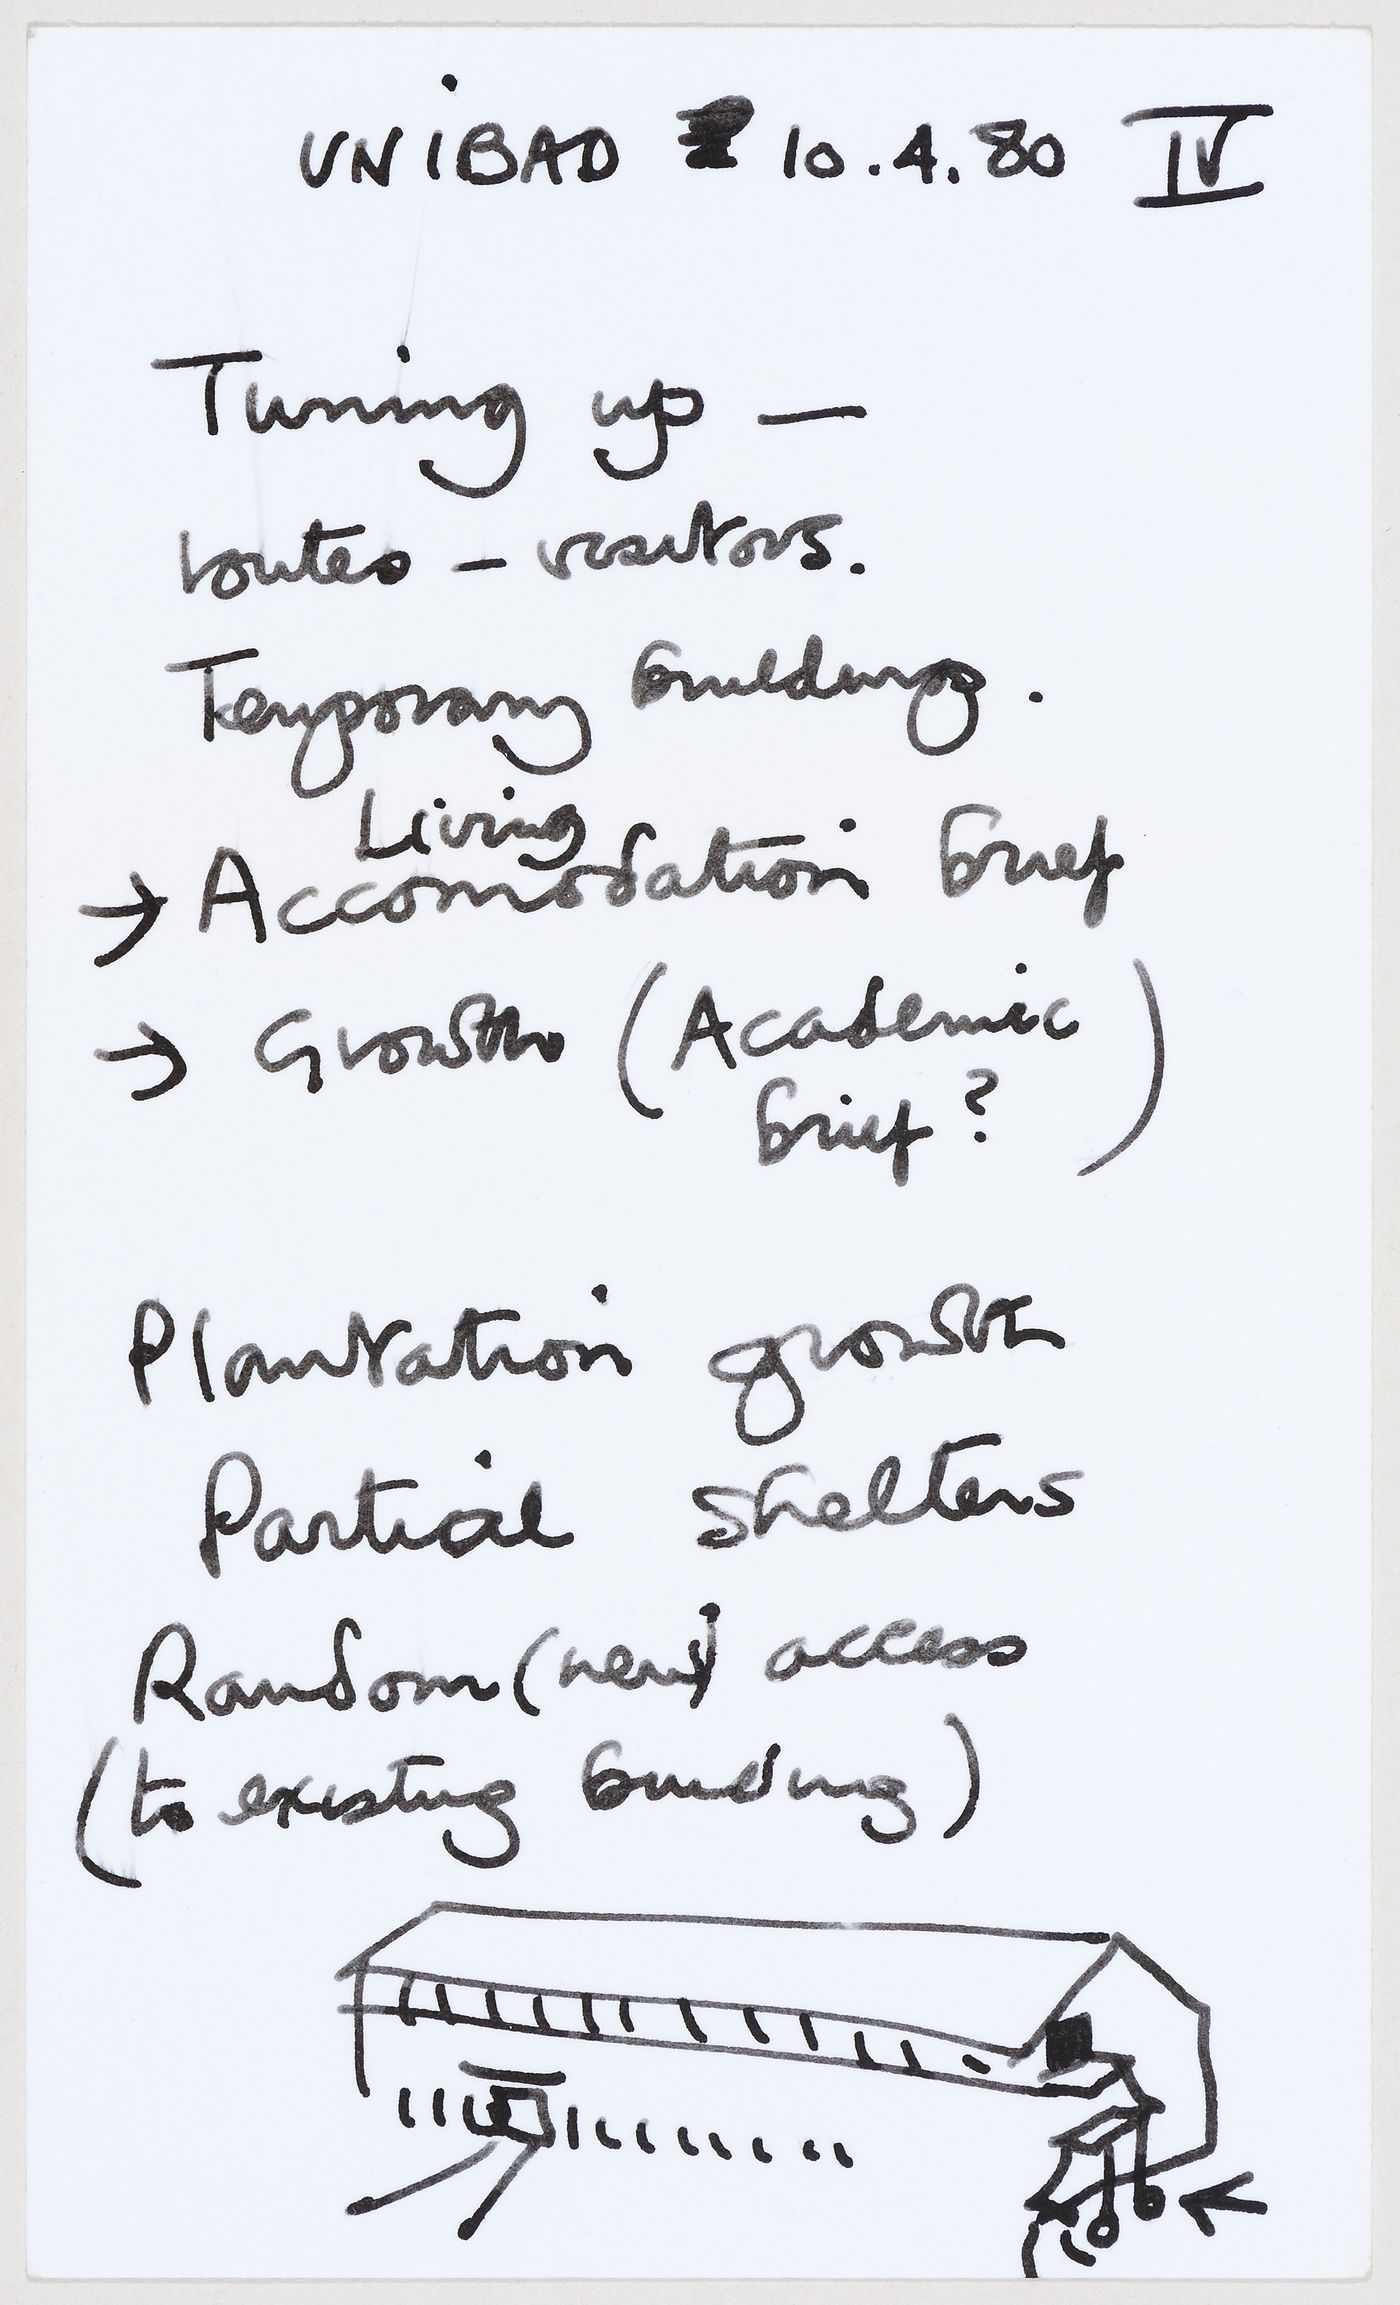 UNiBAD 10.4.80 IV
Tuning up —
routes – visitors.
Temporary buildings.
Living
→ Accomodation brief
→ Growth (Academic
brief?)
Plantation growth
Partial shelters
Random (new) access
(to existing building)